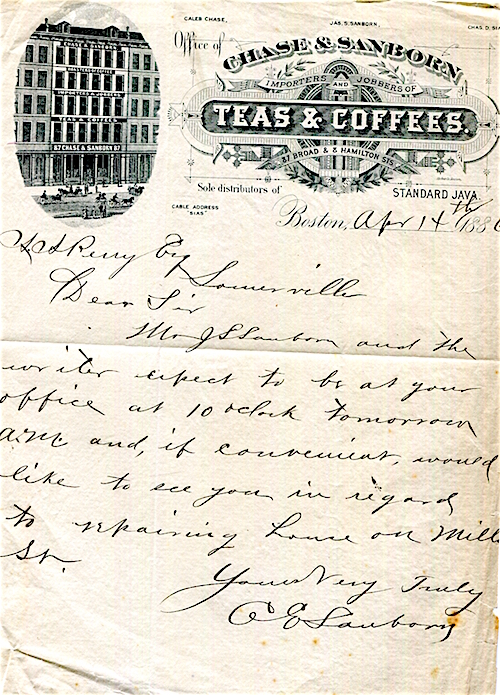 CALEB CHASE,
JAS. S. SANBORN,
CHAS. D. SIA
Office of
CHASE & SANBORN
IMPORTERS AND JOBBERS OF
TEAS & COFFEES.
87 BROAD & 8 HAMILTON STS.
CHASE & SANBORN
ROASTERS OF COFFEE
IMPORTERS & JOBBERS
TEAS & COFFEES
87 CHASE & SANBORN 87
Sole distributors of
STANDARD JAVA
CABLE ADDRESS
"SIAS"
Boston, Apr 14th 188
Perry Esq
Somerville
Dear Sir
Mr J S Sanborn and the
writer expect to be at your
office at 10 oclock tomorrow
A.M. and, if convenient, would
like to see you in regard
to repairing house on Mill
St.
Yours Very Truly
C E Sanborn